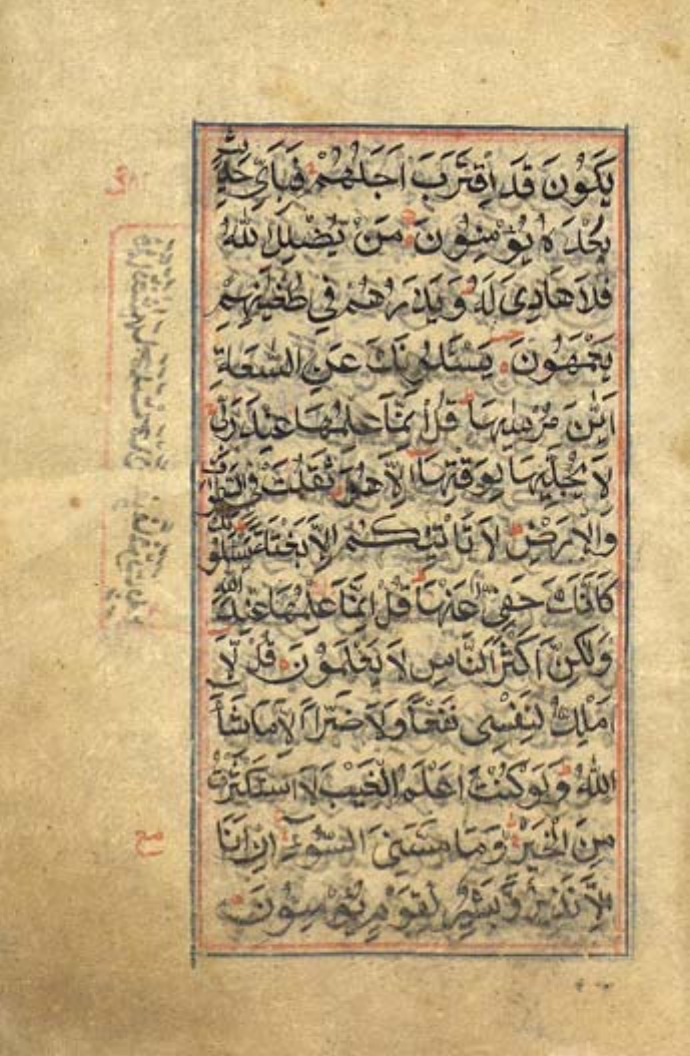 يَكُونَ قَدِ اقْتَرَبَ اَجَلُهُمْ فَبِاَيِّ حَدِيثٍ
بَعْدَهُ يُؤْمِنُونَ مَنْ يُضْلِلِ اللّٰهُ
فَلَا هَادِىَ لَهُ وَيَذَرُهُمْ فِى طُغْيٰنِهِمْ
يَعْمَهُونَ يَسْئَلُونَكَ عَنِ السَّاعَةِ
اَيّٰنَ مُرْسٰيهَا قُلْ اِنَّمَا عِلْمُهَا عِنْدَ رَبِّى
لَا يُجَلِّيهَا لِوَقْتِهَا اِلَّا هُوَ ثَقُلَتْ فِى السَّمٰوٰتِ
وَالْاَرْضِ لَا تَاْتِيكُمْ اِلَّا بَغْتَةً يَسْئَلُونَكَ
كَاَنَّكَ حَفِىٌّ عَنْهَا قُلْ اِنَّمَا عِلْمُهَا عِنْدَ اللّٰهِ
وَلٰكِنَّ اَكْثَرَ النَّاسِ لَا يَعْلَمُونَ قُلْ لَا
اَمْلِكُ لِنَفْسِى نَفْعًا وَلَا ضَرًّا اِلَّا مَا شَآءَ
اللّٰهُ وَلَوْ كُنْتُ اَعْلَمُ الْغَيْبَ لَاسْتَكْثَرْتُ
مِنَ الْخَيْرِ وَمَا مَسَّنِىَ السُّوٓءُ اِنْ اَنَا
اِلَّا نَذِيرٌ وَّبَشِيرٌ لِقَوْمٍ يُؤْمِنُونَ